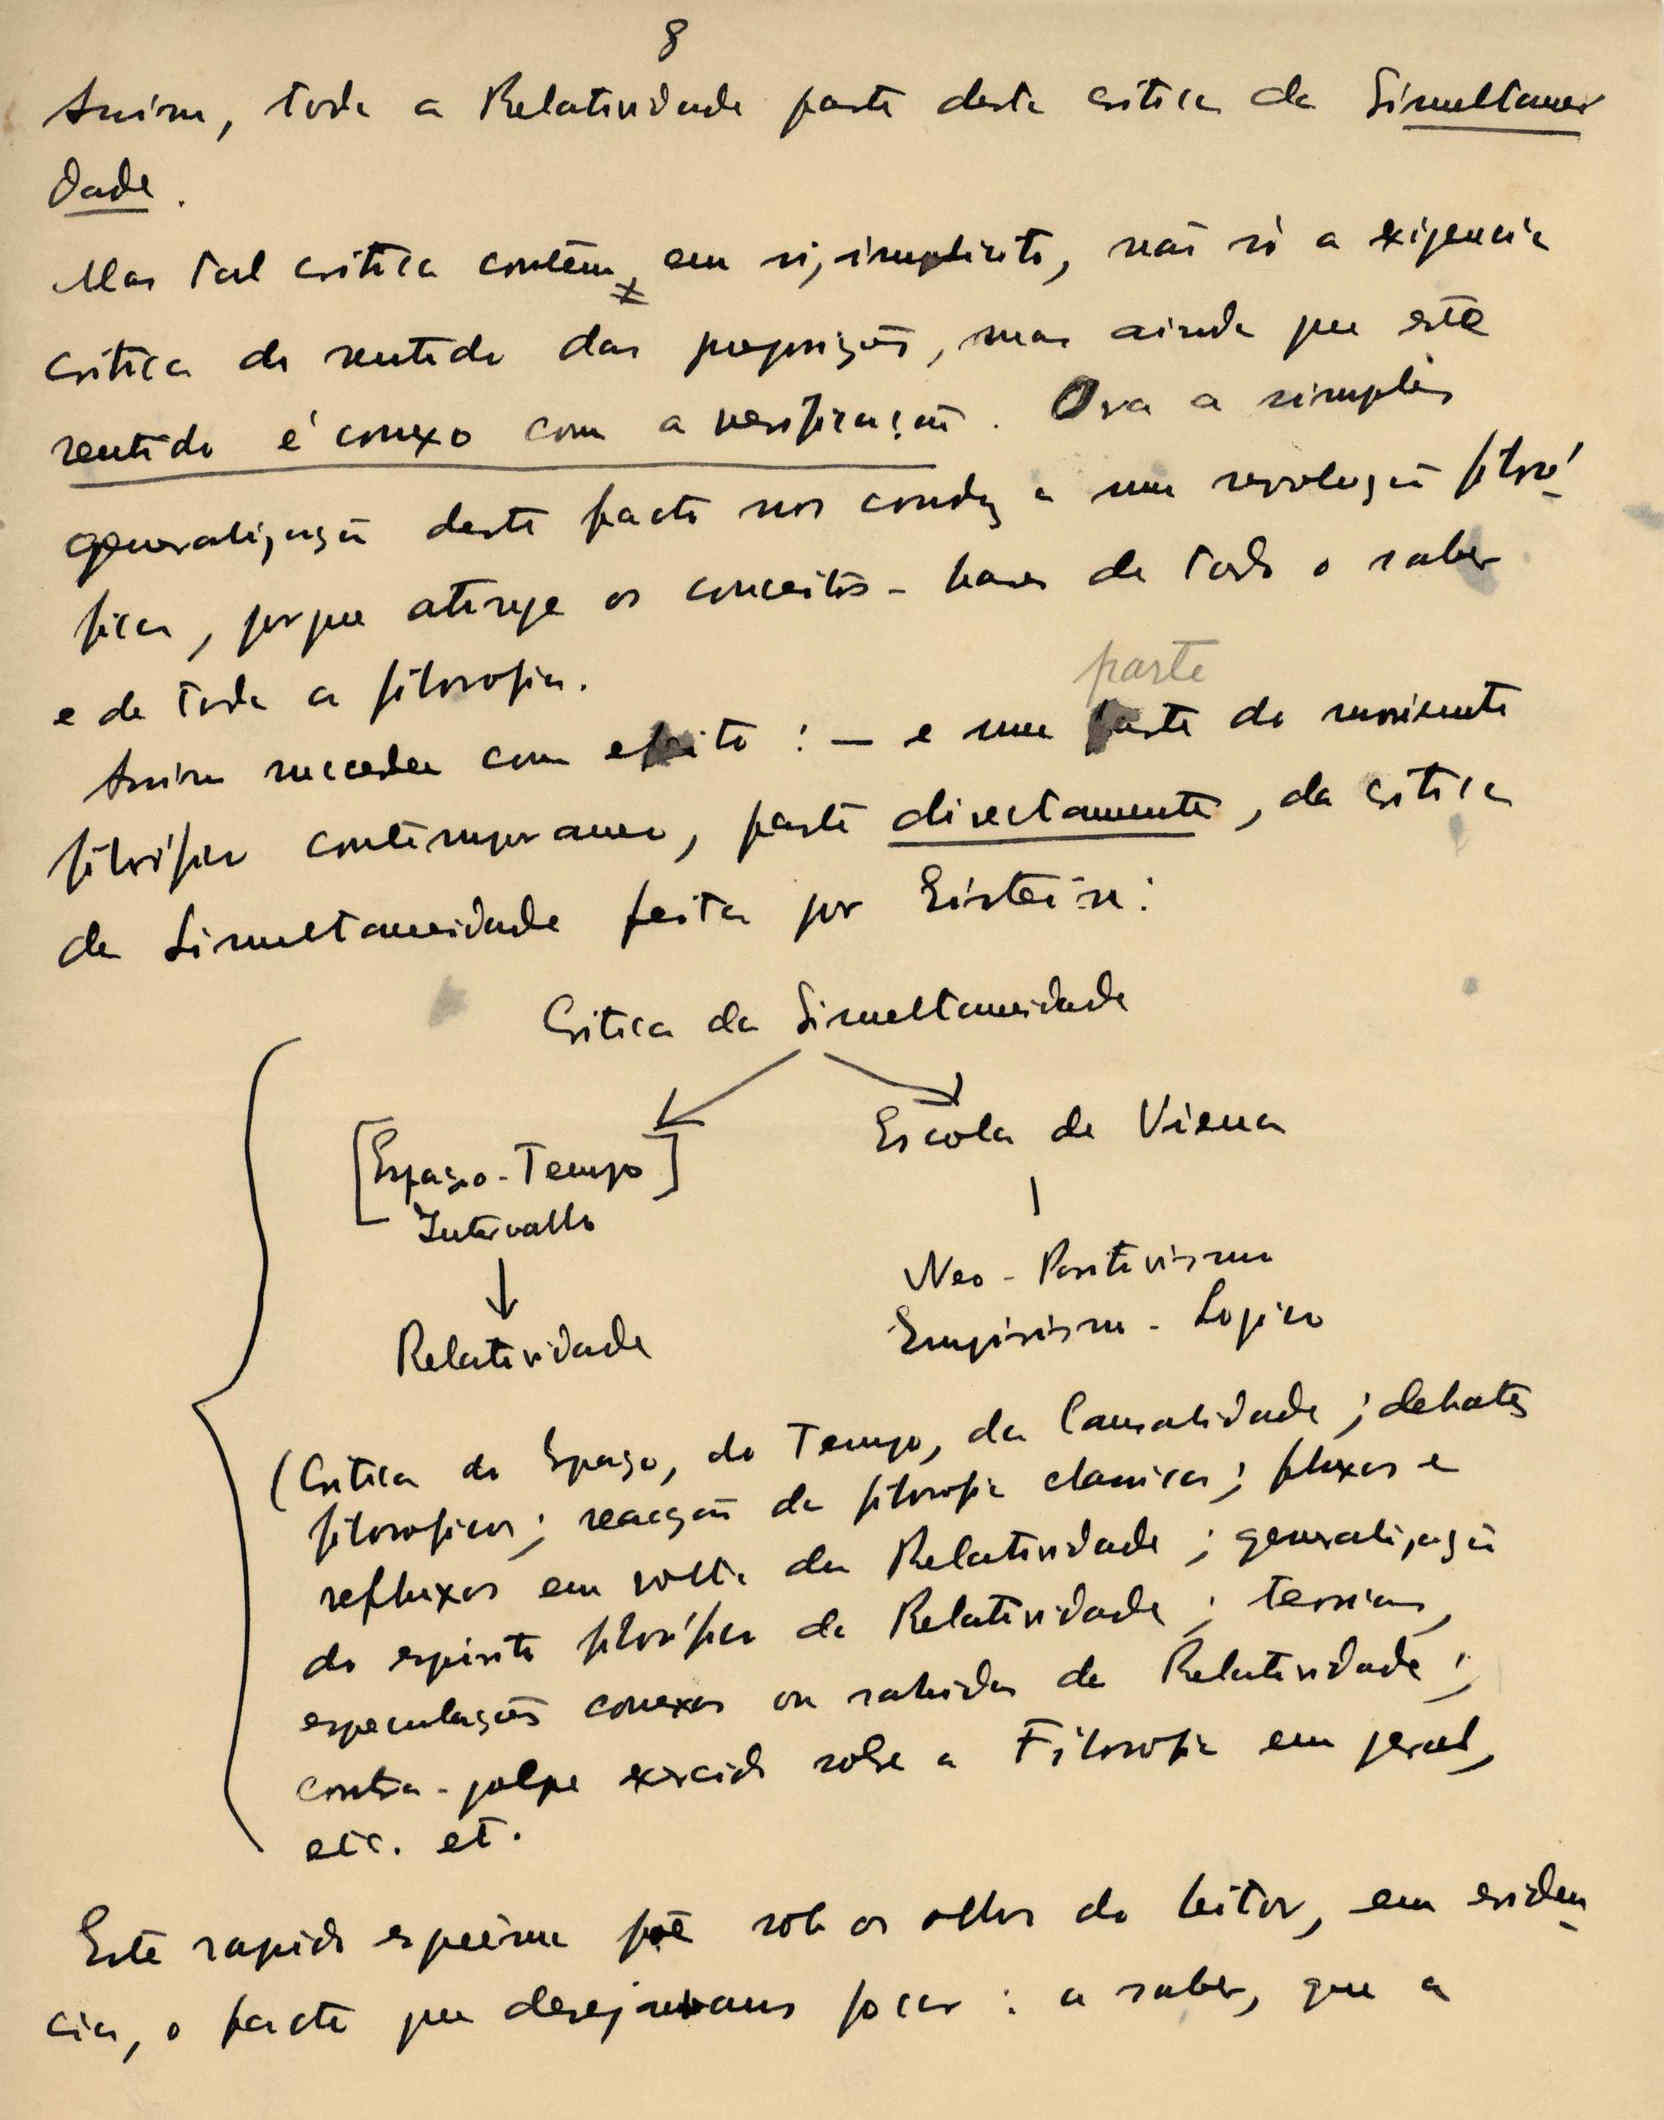 8
Assim, toda a Relatividade parte desta critica da Simultanei
dade.
Mas tal critica contém, em si, implicito, não só a exigencia
critica do sentido das proposições, mas ainda que este
sentido é conexo com a verificação. Ora a simples
generalização deste facto nos conduz a uma revolução filosó-
fica, porque atinge os conceitos-bases de todo o saber
e de toda a filosofia.
parte
Assim sucedeu com efeito : — e uma parte do movimento
filosófico contemporaneo, parte directamente, da critica
da Simultaneidade feita por Einstein:
Critica da Simultaneidade
[Espaço-Tempo]
Intervallo
Relatividade
Escola de Viena
Neo-Positivismo
Empirismo-Logico
(Critica do Espaço, do Tempo, da Causalidade; debates
filosoficos; reacção da filosofia classica; fluxos e
refluxos em volta da Relatividade; generalização
do espirito filosófico da Relatividade; teorias,
especulações conexas ou sahidas da Relatividade;
contra-golpe exercido sobre a Filosofia em geral,
etc. et.
Este rapido esquema põe sob os olhos do leitor, em eviden-
cia, o facto que desejavamos focar: a saber, que a